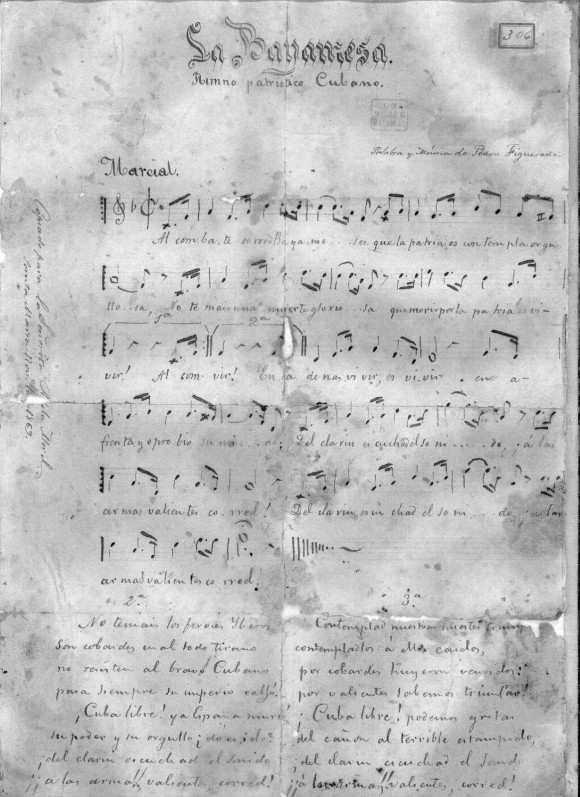 306
La Bayamesa.
Himno patriotico Cubano.
Palabra y Música de Pedro Figueredo.
Marcial.
Al com.ba.te corred Ba ya me...ses que la patria os con tem pla orgu
llo-sa, No te mais una muerte glorio...sa que morir por la pa tria es vi-
1ª 2ª
vir! Al com vir! En ca de nas vi vir, es vi vir . en a-
frenta y opro bio su mi...do; Del clarin es cuchad el so ni......do, . a las
armas valientes co..rred! Del clarin, es cuchad el so ni...do . a las
armas valientes co rred.
2ª
No temais los feroces Yberos
Son cobardes cual todo tirano
no resisten al bravo Cubano
para siempre su imperio cayó!
¡Cuba libre! ya España murió
su poder y su orgullo ¿do es ido?
¡del clarin escuchad el sonido
¡¡a las armas!! valientes, corred!
3ª
Contemplad nuestras huestes
contemplados a ellos caidos,
por cobardes huyeron vencidos:
por valientes sabemos triunfar!
¡Cuba libre! podemos gritar
del cañon al terrible estampido,
¡del clarin escuchad el sonido
¡¡a las armas!! valientes, corred!
Copiado para la Señorita
1869.